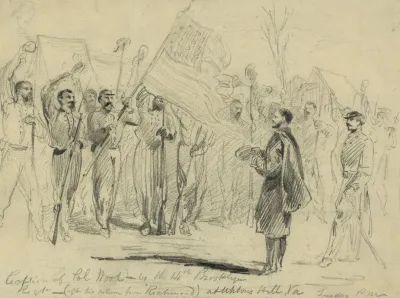 Reception of Col Wood — by the 14th Brooklyn
Regt — (on his return from Richmond) at Uptons Hill Va